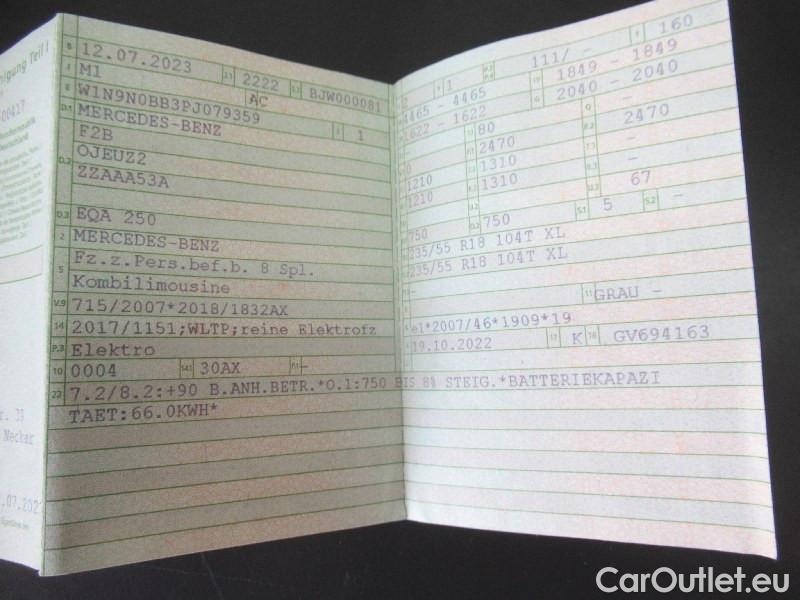 igung Teil I
00417
r. 39
Neckar
.07.202
B 12.07.2023 2.1 2222 2.2 BJW000081
J M1 AC
E W1N9N0BB3PJ079359 3 1
D.1 MERCEDES-BENZ
D.2 F2B
OJEUZ2
ZZAAA53A
D.3 EQA 250
2 MERCEDES-BENZ
5 Fz.z.Pers.bef.b. 8 Spl.
Kombilimousine
V.9 715/2007*2018/1832AX
14 2017/1151;WLTP;reine Elektrofz
P.3 Elektro
10 0004 14.1 30AX P.1 -
22 7.2/8.2:+90 B.ANH.BETR.*O.1:750 BIS 8% STEIG.*BATTERIEKAPAZI
TAET:66.0KWH*
2 9 1 P.2 P.4 111/ - T 160
4465 - 4465 1849 - 1849
1622 - 1622 G 2040 - 2040
80 Q -
2470 F.2 2470
0 1310 -
1210 1310 -
1210 U.3 67
750 O.2 750 S.1 5 S.2 -
235/55 R18 104T XL
235/55 R18 104T XL
- 11 GRAU -
K e1*2007/46*1909*19
6 19.10.2022 17 K 16 GV694163
CarOutlet.eu